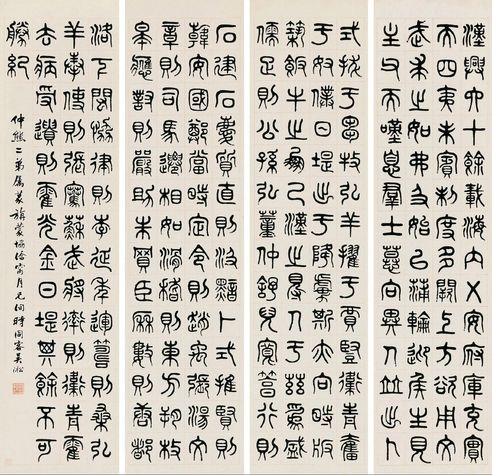 漢興六十餘載海內乂安府庫充實
而四夷未賓制度多闕上方欲用文
武求之如弗及始以蒲輪迎枚生見
主父而嘆息羣士慕向異人並出卜
式拔于芻牧弘羊擢于賈豎衛青奮
于奴僕日磾出于降虜斯亦曩時版
築飯牛之朋已漢之得人于茲為盛
儒雅則公孫弘董仲舒兒寬篤行則
石建石慶質直則汲黯卜式推賢則
韓安國鄭當時定令則趙禹張湯文
章則司馬遷相如滑稽則東方朔枚
皋應對則嚴助朱買臣厤數則唐都
洛下閎協律則李延年運籌則桑弘
羊奉使則張騫蘇武將率則衛青霍
去病受遺則霍光金日磾其餘不可
勝紀
仲熊二弟屬篆旃蒙協洽寎月元旬時同客吳淞